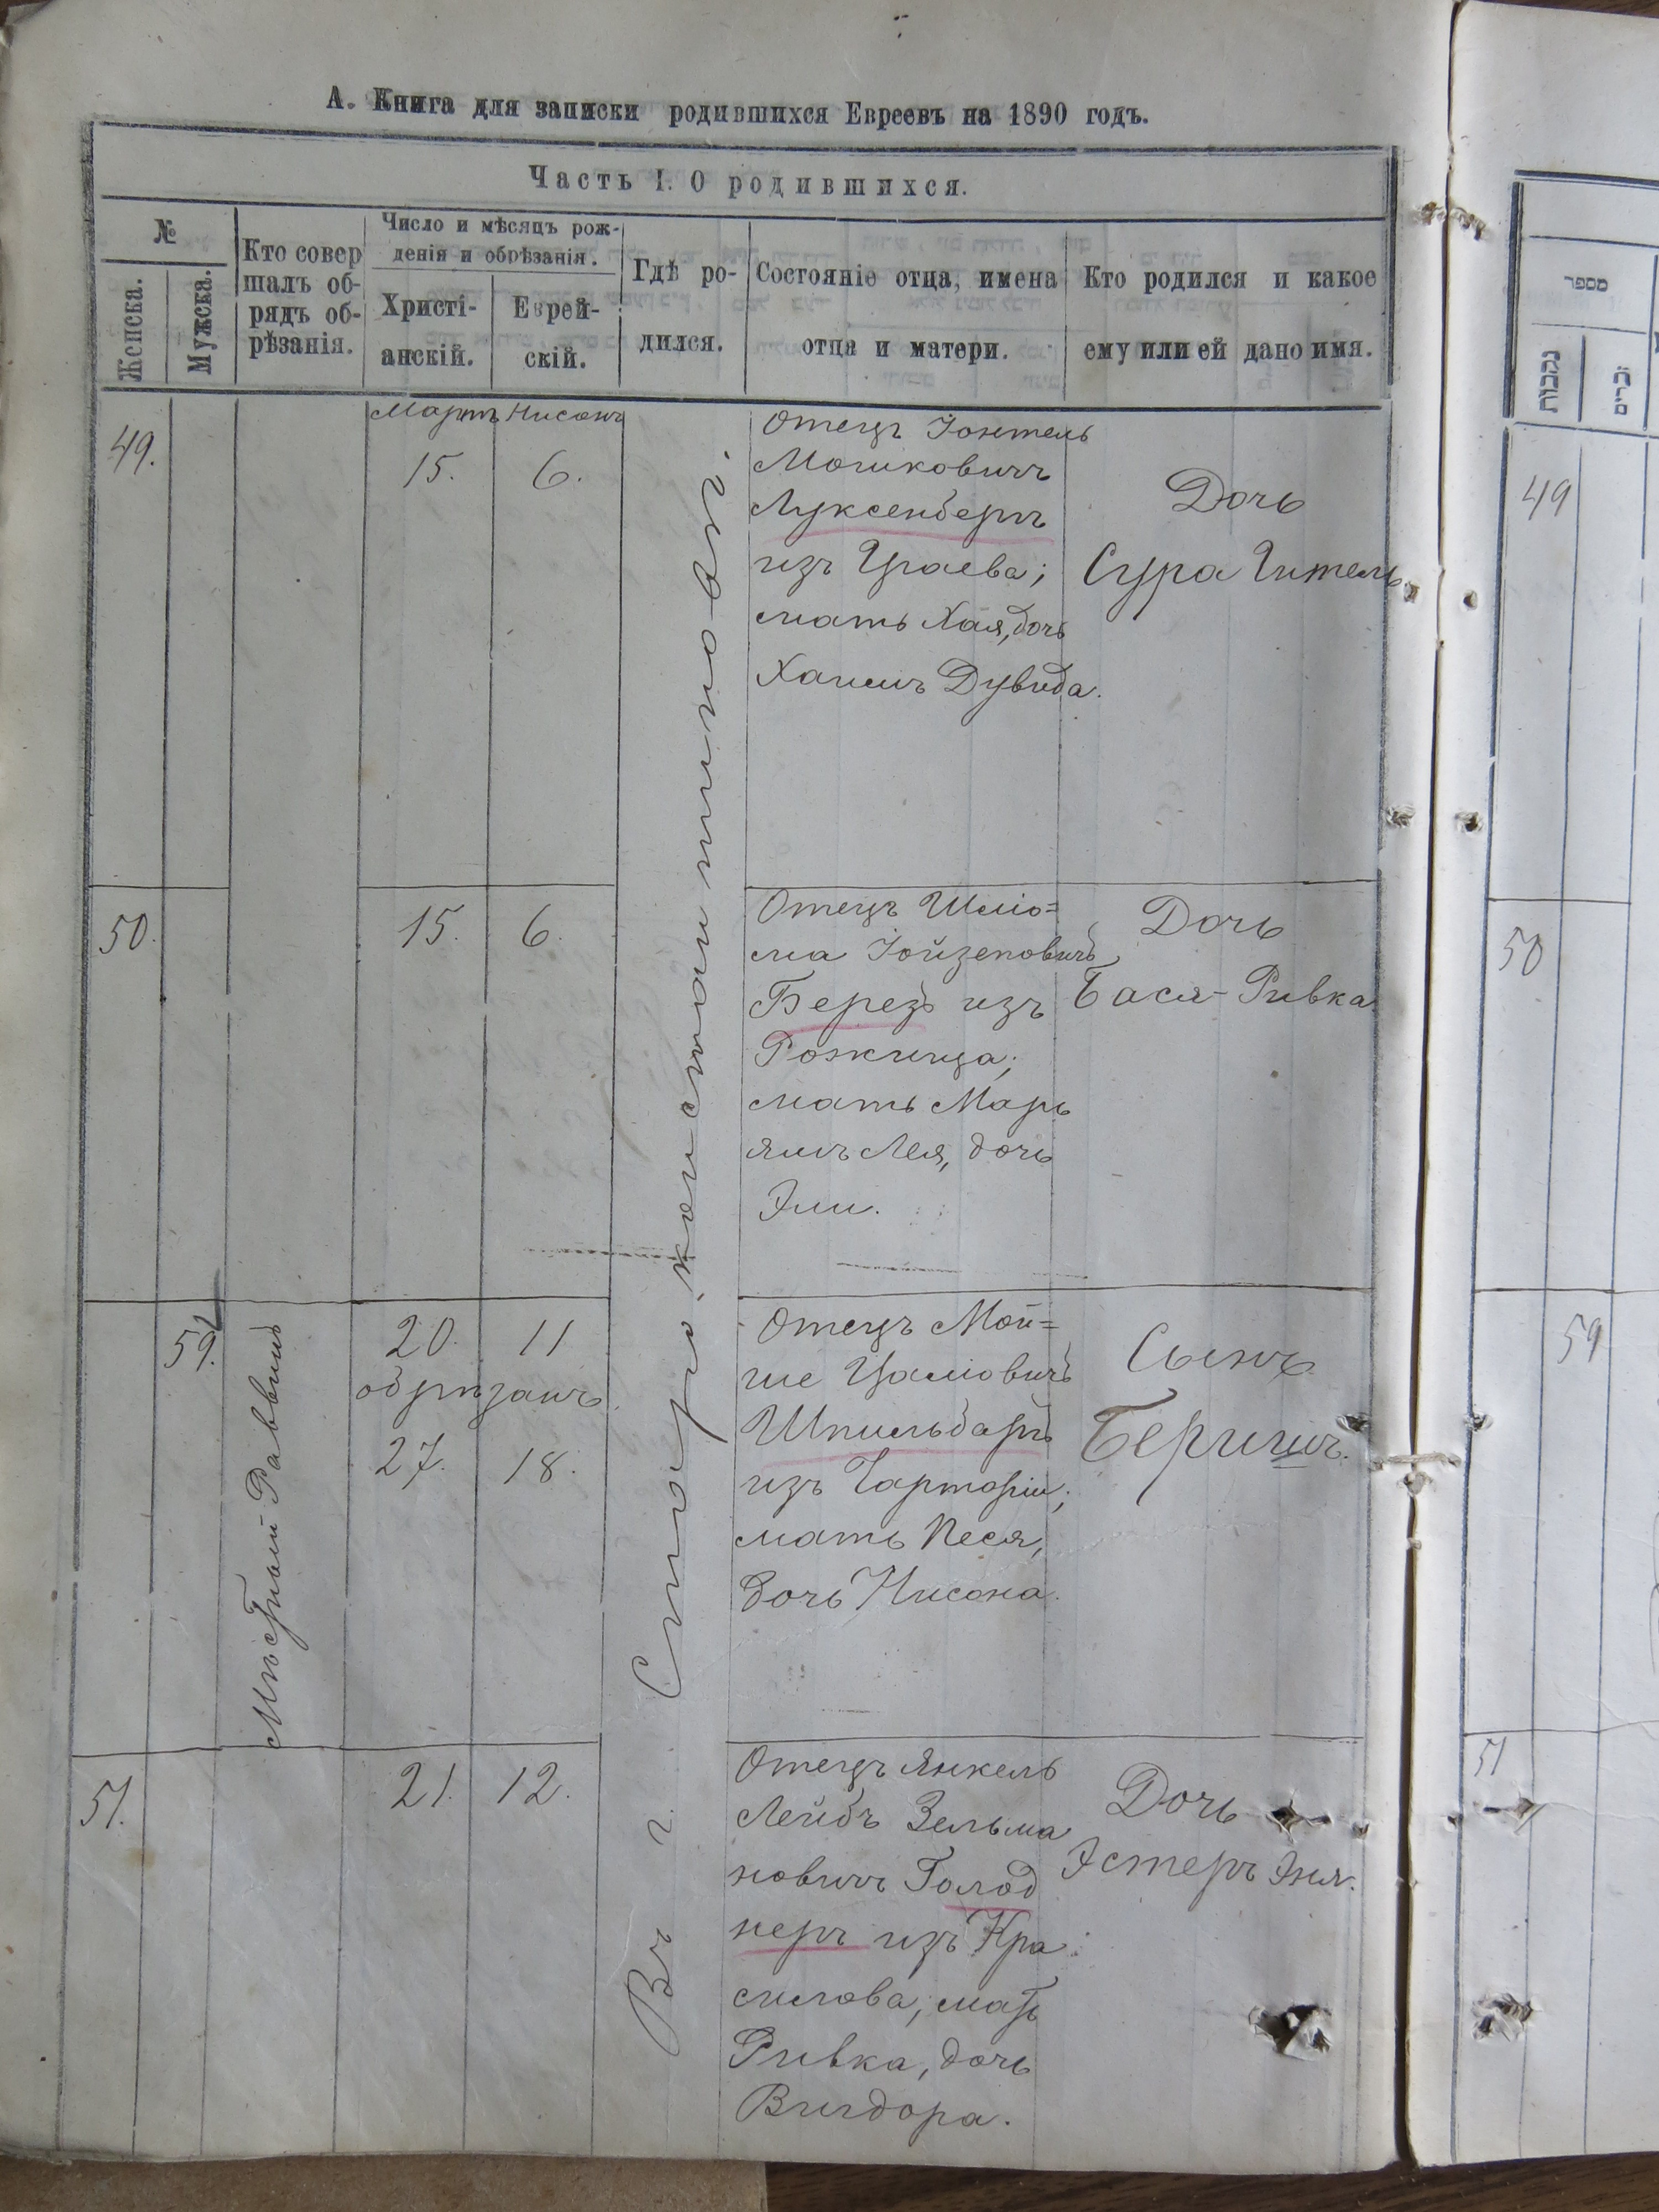 А. Книга для записки родившихся Евреевъ на 1890 годъ.
Часть I. О родившихся.
№
Женска.
Мужска.
Кто совер
шалъ об-
рядъ об-
рѣзанія.
Число и мѣсяцъ рож-
денія и обрѣзанія.
Христі-
анскій.
Еврей-
скій.
Гдѣ ро-
дился.
Состояніе отца, имена
отца и матери.
Кто родился и какое
ему или ей дано имя.
Мартъ Нисонъ
49.
15.
6.
Отецъ Іонтель
Мошковичъ
Луксенбергъ
изъ
мать Хая, дочь
Хаимъ Дувида.
Дочь
Сура Гитель.
50.
15.
6.
Отецъ Шліо=
ма Іойзеповичъ
Березъ изъ
Рожища;
мать Марь
ямъ Лея, дочь
Эли.
Дочь
Бася-Ривка
59.
Мѣстный Раввинъ
20.
11
обрѣзанъ.
27.
18.
Отецъ Мой=
ше
Шпильбаргъ
изъ Чарторіи;
мать Песя,
дочь Нисона.
Сынъ
Беришъ.
51.
21.
12.
Отецъ Янкель
Лейбъ Зельма
новичъ Голод
неръ изъ Кра
силова; мать
Ривка, дочь
Вигдора.
Дочь
Эстеръ Эня.
Въ г. Староконстантиновѣ.
מספר
נקבות
זכרים
49
50
59
51